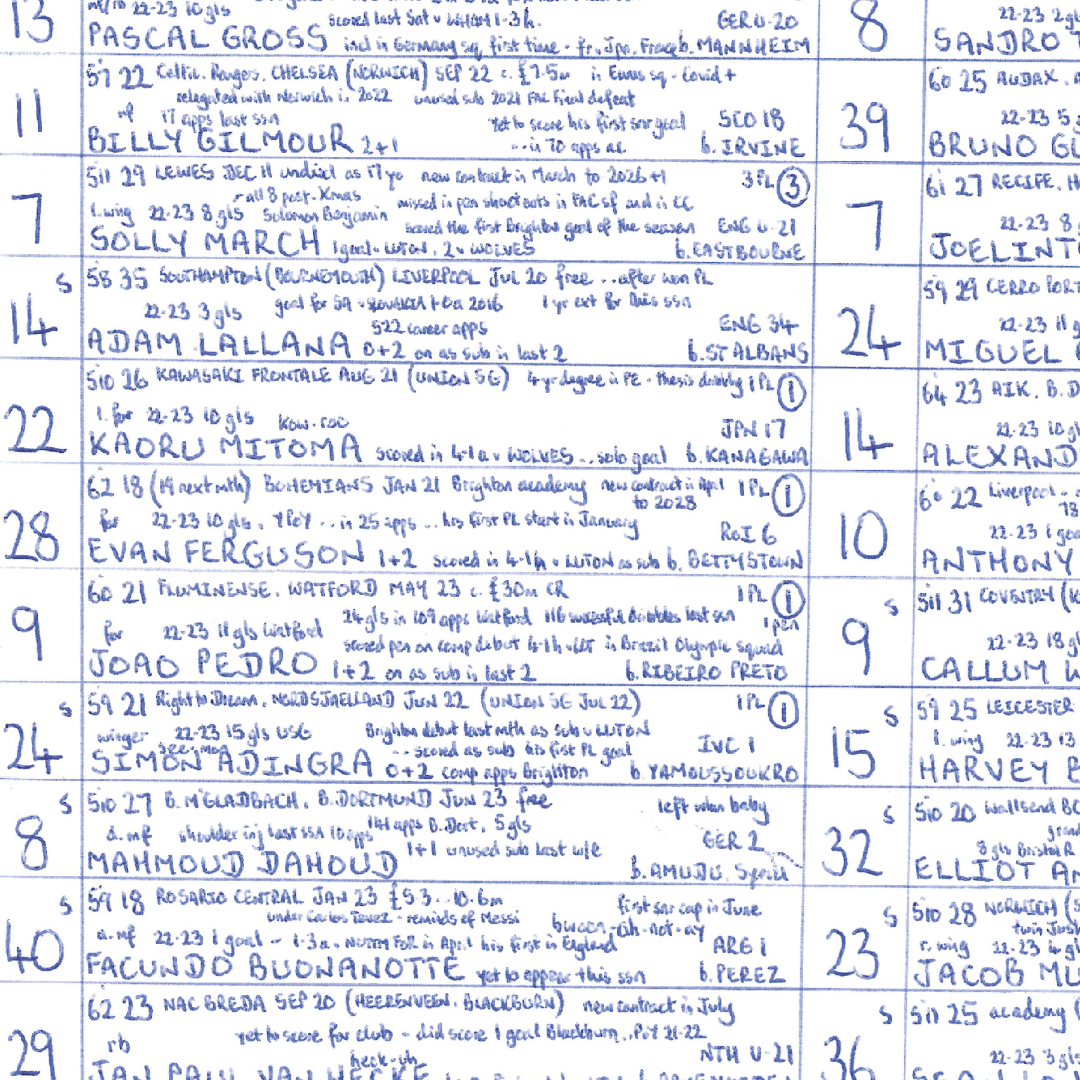 13
22-23 10 gls
scored last Sat v WHAM 1-3 h.
GER U-20
PASCAL GROSS incl in Germany sq, first time - fr, Jpn, France b. MANNHEIM
11
57 22 Celtic. Rangers. CHELSEA (NORWICH) SEP 22 c. £7.5m in Euros sq - Covid +
relegated with Norwich in 2022 unused sub 2021 FAC Final defeat
mf 17 apps last ssn yet to score his first snr goal SCO 18
BILLY GILMOUR 2+1 ... in 70 apps ac. b. IRVINE
7
511 29 LEWES DEC 11 undiscl as 17 yo new contract in March to 2026 +1 3 PL 3
all 8 post-Xmas missed in pen shootouts in FAC sf and in CC
l.wing 22-23 8 gls Solomon Benjamin scored the first Brighton goal of the season ENG U-21
SOLLY MARCH 1 goal v LUTON, 2 v WOLVES b. EASTBOURNE
s
14
58 35 SOUTHAMPTON (BOURNEMOUTH) LIVERPOOL JUL 20 free ... after won PL
22-23 3 gls goal for SA v SLOVAKIA 2016 1 yr ext for this ssn
522 career apps ENG 34
ADAM LALLANA 0+2 on as sub in last 2 b. ST ALBANS
22
510 26 KAWASAKI FRONTALE AUG 21 (UNION SG) 4-yr degree in PE - thesis dribbling 1 PL 1
l. for 22-23 10 gls kow-roo JPN 17
KAORU MITOMA scored in 4-1 a v WOLVES .. solo goal b. KANAGAWA
28
62 18 (19 next mth) BOHEMIANS JAN 21 Brighton academy new contract in April 1 PL 1
to 2028
for 22-23 10 gls, YPoY .. in 25 apps ... his first PL start in January RoI 6
EVAN FERGUSON 1+2 scored in 4-1 h v LUTON as sub b. BETTYSTOWN
9
60 21 FLUMINENSE. WATFORD MAY 23 c. £30m CR 1 PL 1
24 gls in 109 apps Watford 116 successful dribbles last ssn 1 pen
for 22-23 11 gls Watford scored pen on comp debut 4-1 h v LUT in Brazil Olympic squad
JOAO PEDRO 1+2 on as sub in last 2 b. RIBEIRO PRETO
s
24
59 21 Right to Dream. NORDSJAELLAND JUN 22 (UNION SG JUL 22) 1 PL 1
winger 22-23 15 gls USG Brighton debut last mth as sub v LUTON
... scored as sub his first PL goal IVC 1
SIMON ADINGRA 0+2 comp apps Brighton b. YAMOUSSOUKRO
s
8
510 27 B. M'GLADBACH. B. DORTMUND JUN 23 free left when baby
d. mf shoulder inj last ssn 10 apps 141 apps B. Dort, 5 gls GER 2
MAHMOUD DAHOUD 1+1 unused sub last w/e b. AMUDU, Syria
s
40
59 18 ROSARIO CENTRAL JAN 23 £5.3 .. 10.6m first snr cap in June
under Carlos Tevez - reminds of Messi bwon-oh-not-ay
a. mf 22-23 1 goal - 1-3 a v NOTTM FOR in April his first in England ARG 1
FACUNDO BUONANOTTE yet to appear this ssn b. PEREZ
29
62 23 NAC BREDA SEP 20 (HEERENVEEN. BLACKBURN) new contract in July
rb yet to score for club - did score 1 goal Blackburn .. PoY 21-22
heck-uh NTH U-21
JAN PAUL VAN HECKE
8
22-23 2 gls
SANDRO
39
60 25 AUDAX.
22-23 5
BRUNO
7
61 27 RECIFE.
22-23 8
JOELINT
24
59 29 CERRO PORT
22-23 11 g
MIGUEL
14
64 23 AIK. B.D
22-23 10 gl
ALEXAND
10
60 22 Liverpool -
22-23 1 goa
ANTHONY
s
9
511 31 COVENTRY
22-23 18 gl
CALLUM W
s
15
59 25 LEICESTER
l. wing 22-23 13
HARVEY
s
32
510 20 Wallsend BC
8 gls Bristol R
ELLIOT AN
s
23
510 28 NORWICH
twin
r. wing 22-23 4 gl
JACOB MU
s
36
511 25 academy
22-23 3 gls